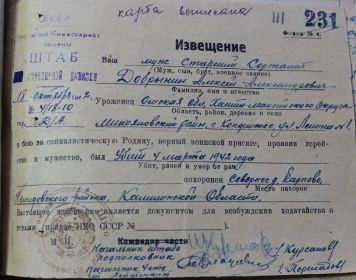 карта выписана
231
Форма № 4
Извещение
Народный Комиссариат
Обороны
ШТАБ
СТРЕЛКОВОЙ ДИВИЗИИ
Ваш муж Старший Сержант
(Муж, сын, брат, военное звание)
Добрынин Алексей Александрович
Фамилия, имя и отчество
18 октября 1942 г.
№ 4/18-10
Уроженец Омская обл, Ханты-Мансийского Округа
Область, район, деревня и село
Микояновский район, с. Кондинское, ул. Ленина № 1
в бою за социалистическую Родину, верный воинской присяге, проявив герой-
ство и мужество, был Убит 4 марта 1942 года
Убит, ранен и умер от ран
похоронен Севернее д.
Место похорон
района, Калининской Области.
Настоящее извещение является документом для возбуждения ходатайства о
пенсии (приказ НКО СССР №
М. П.
Командир части
Начальник Штаба
Подполковник
/Курсаков/
Начальник